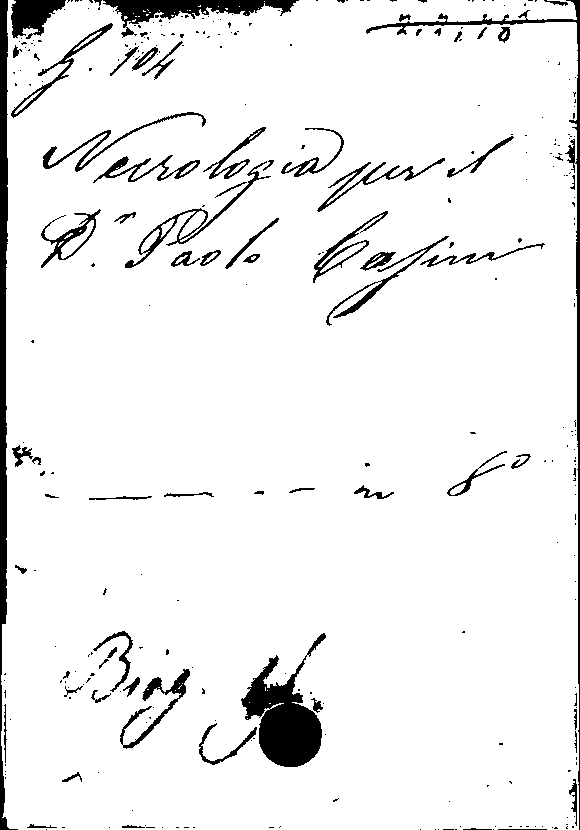 G. 104
Necrologia per il
D.r Paolo Cassini
- — — - - in 8°
Biog.